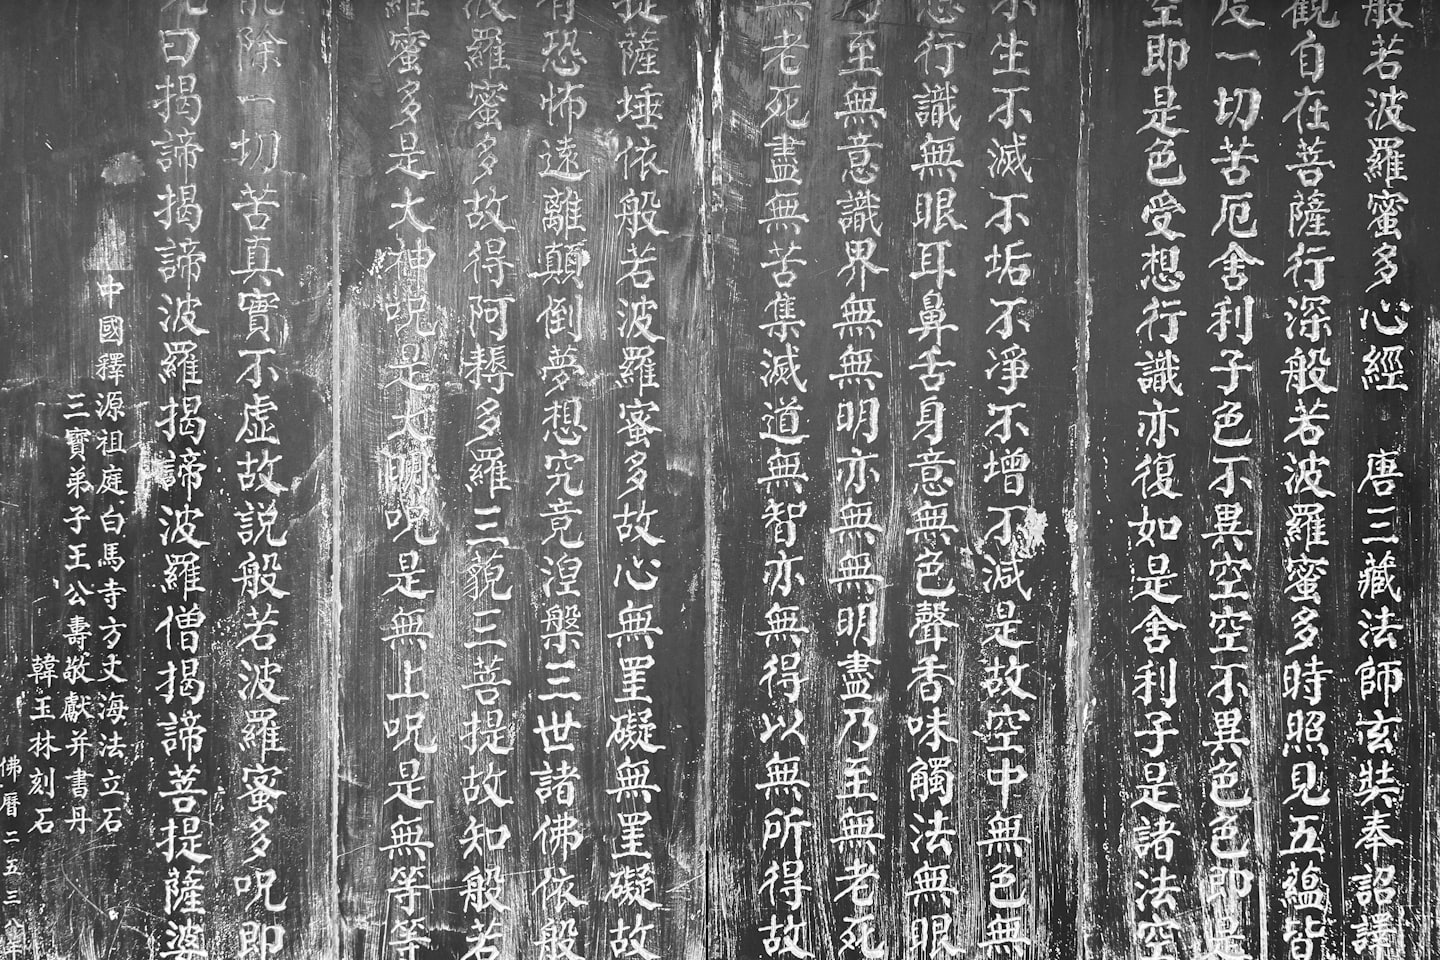 般若波羅蜜多心經 唐三藏法師玄奘奉詔譯
觀自在菩薩行深般若波羅蜜多時照見五蘊皆
度一切苦厄舍利子色不異空空不異色色即是
空即是色受想行識亦復如是舍利子是諸法空
不生不滅不垢不凈不增不減是故空中無色無
想行識無眼耳鼻舌身意無色聲香味觸法無眼
乃至無意識界無無明亦無無明盡乃至無老死
無老死盡無苦集滅道無智亦無得以無所得故
提薩埵依般若波羅蜜多故心無罣礙無罣礙故
有恐怖遠離顛倒夢想究竟涅槃三世諸佛依般
波羅蜜多故得阿耨多羅三藐三菩提故知般若
羅蜜多是大神呪是大明呪是無上呪是無等等
能除一切苦真實不虛故説般若波羅蜜多呪即
曰揭諦揭諦波羅揭諦波羅僧揭諦菩提薩婆
中國釋源祖庭白馬寺方丈海法立石
三寶弟子王公壽敬獻并書丹
韓玉林刻石
佛曆二五三八年